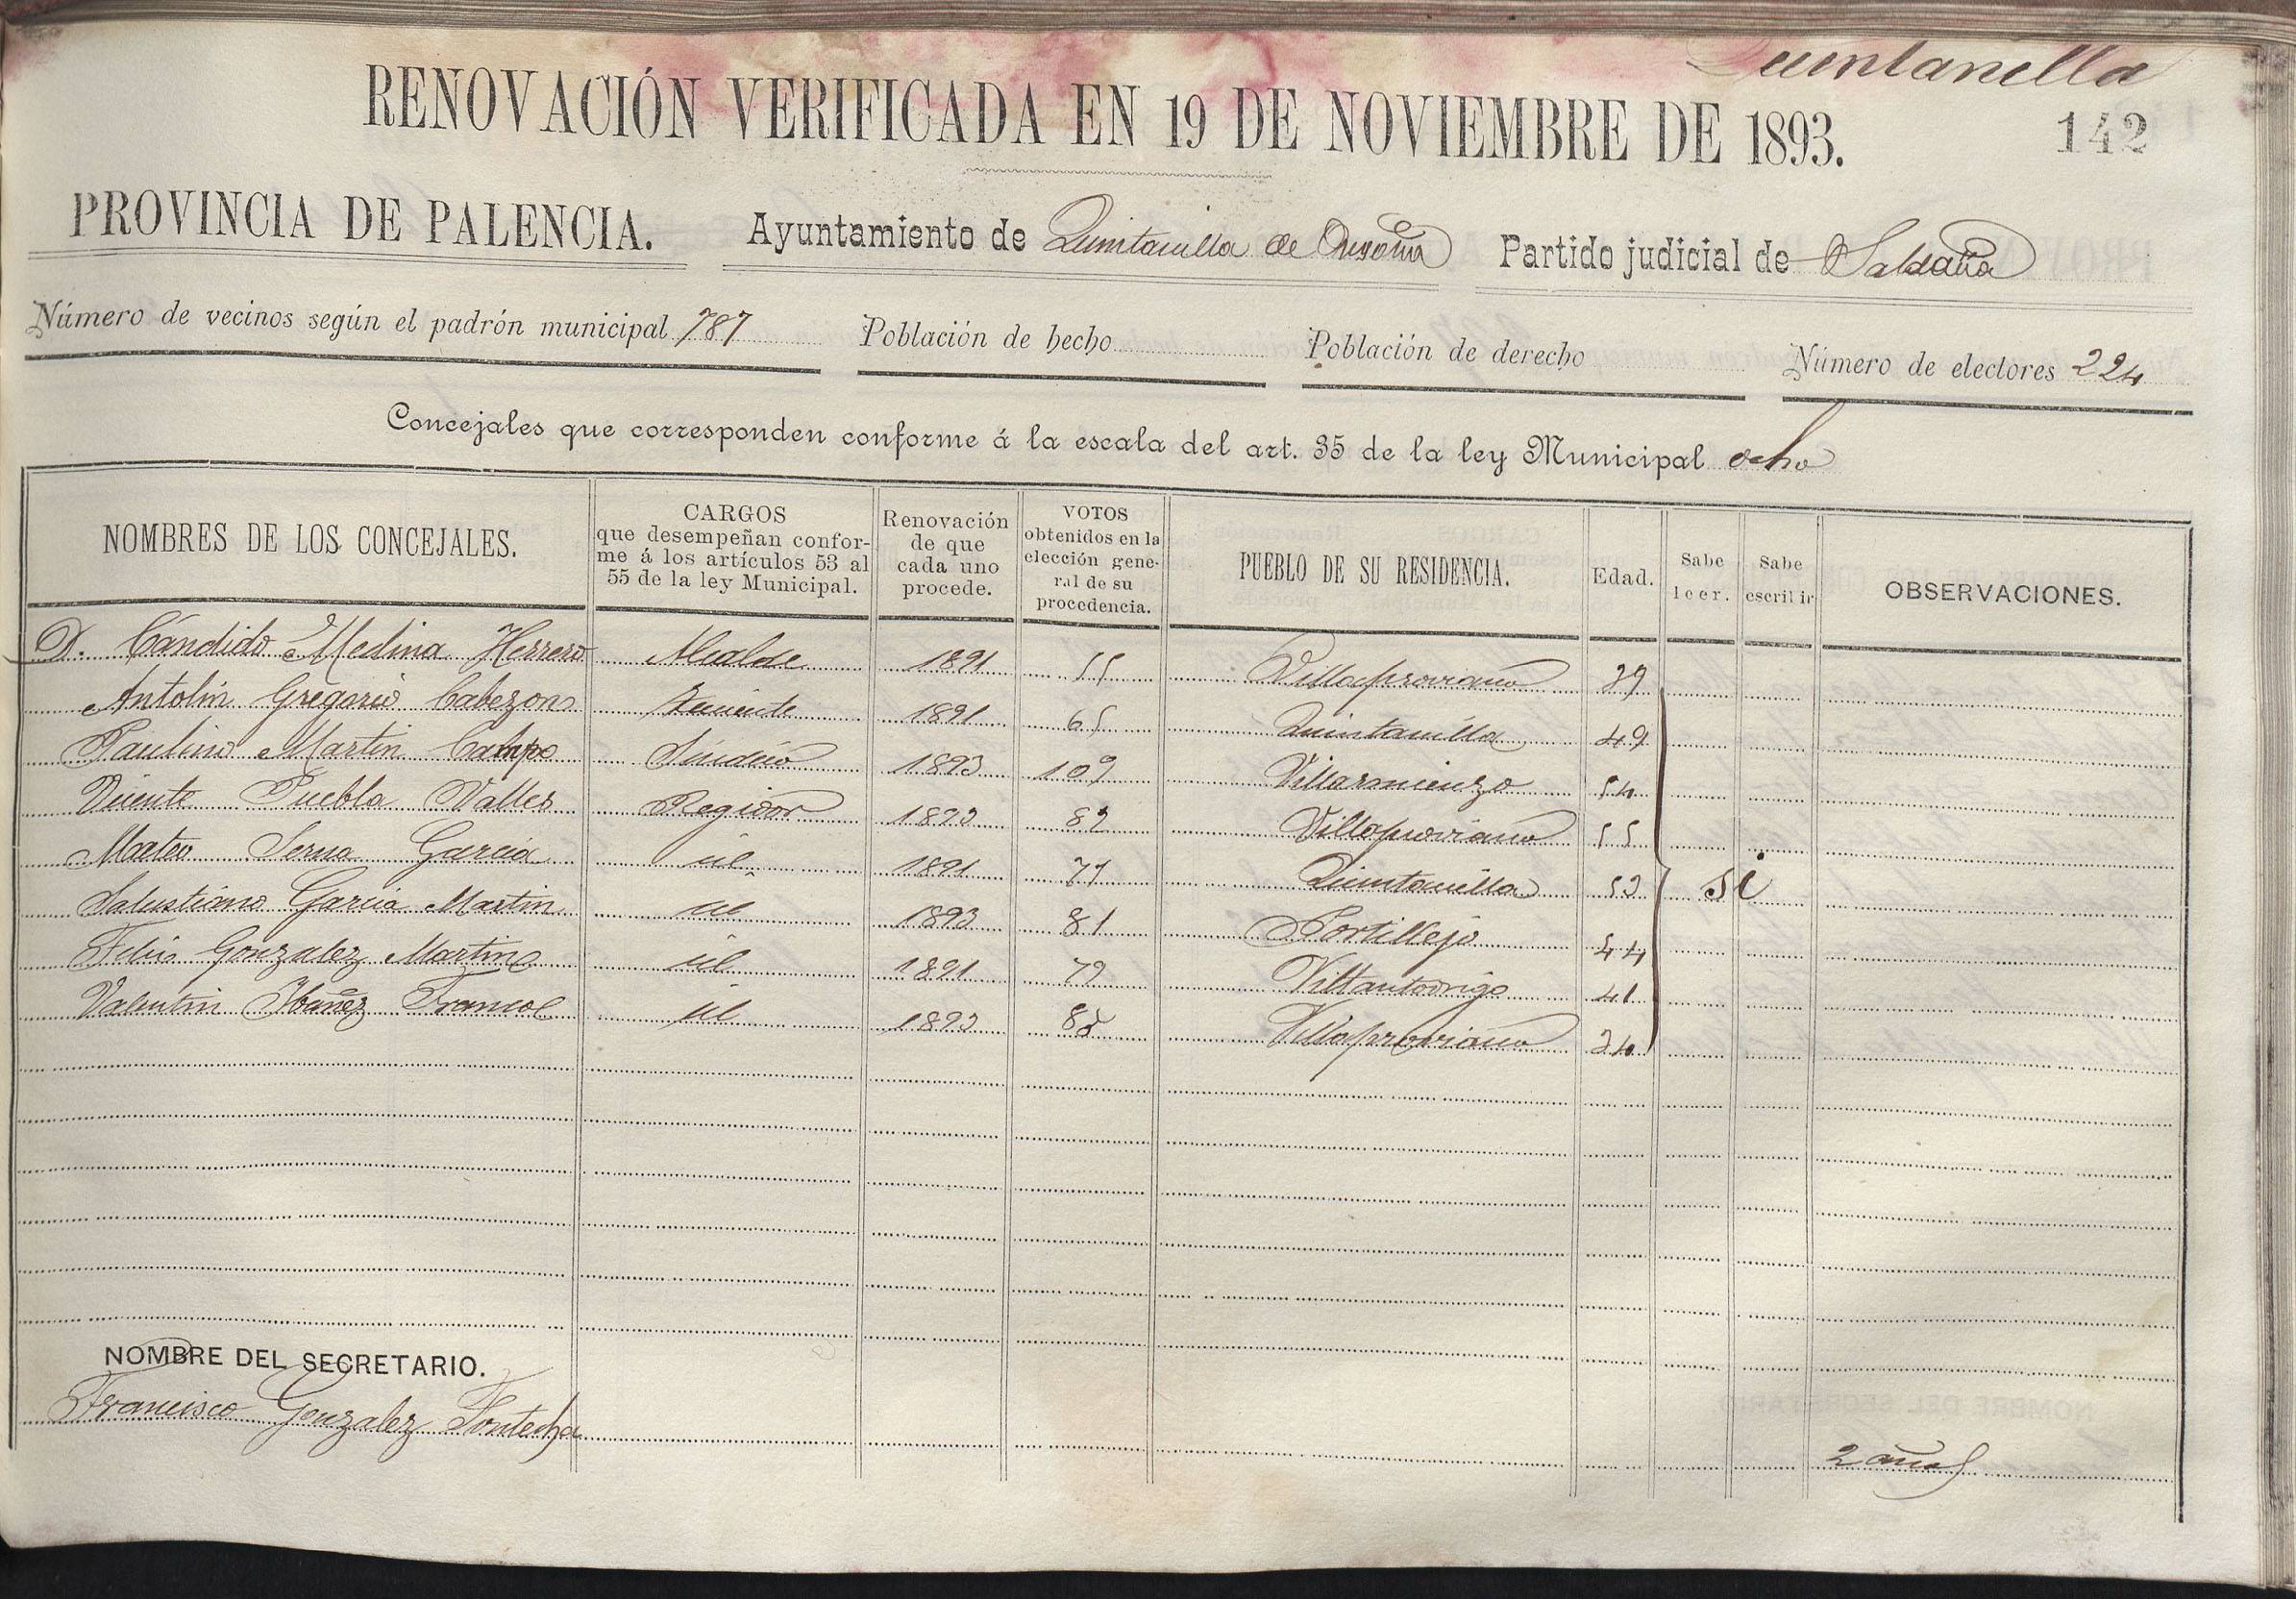 Quintanilla
RENOVACIÓN VERIFICADA EN 19 DE NOVIEMBRE DE 1893.
142
PROVINCIA DE PALENCIA. Ayuntamiento de Quintanilla de Onsoña Partido judicial de Saldaña
Número de vecinos según el padrón municipal 787 Población de hecho Población de derecho Número de electores 224
Concejales que corresponden conforme á la escala del art. 35 de la ley Municipal ocho
NOMBRES DE LOS CONCEJALES. CARGOS que desempeñan conforme á los artículos 53 al 55 de la ley Municipal. Renovación de que cada uno procede. VOTOS obtenidos en la elección general de su procedencia. PUEBLO DE SU RESIDENCIA. Edad. Sabe leer. Sabe escribir OBSERVACIONES.
D. Cándido Medina Herrero Alcalde 1891 55 Villaproviano 39
Antolin Gregorio Cabezon Teniente 1891 65 Quintanilla 49
Paulino Martin Campo Síndico 1893 109 Villarmienzo 54
Vicente Puebla Valles Regidor 1893 82 Villaproviano 55
Mateo Serna Garcia id 1891 77 Quintanilla 53 Si
Salustiano Garcia Martin id 1893 81 Portillejo 44
Felix Gonzalez Martin id 1891 79 Villantodrigo 41
Valentin Ibañez Francol id 1893 85 Villaproviano 34
NOMBRE DEL SECRETARIO.
Francisco Gonzalez Fontecha
2 años